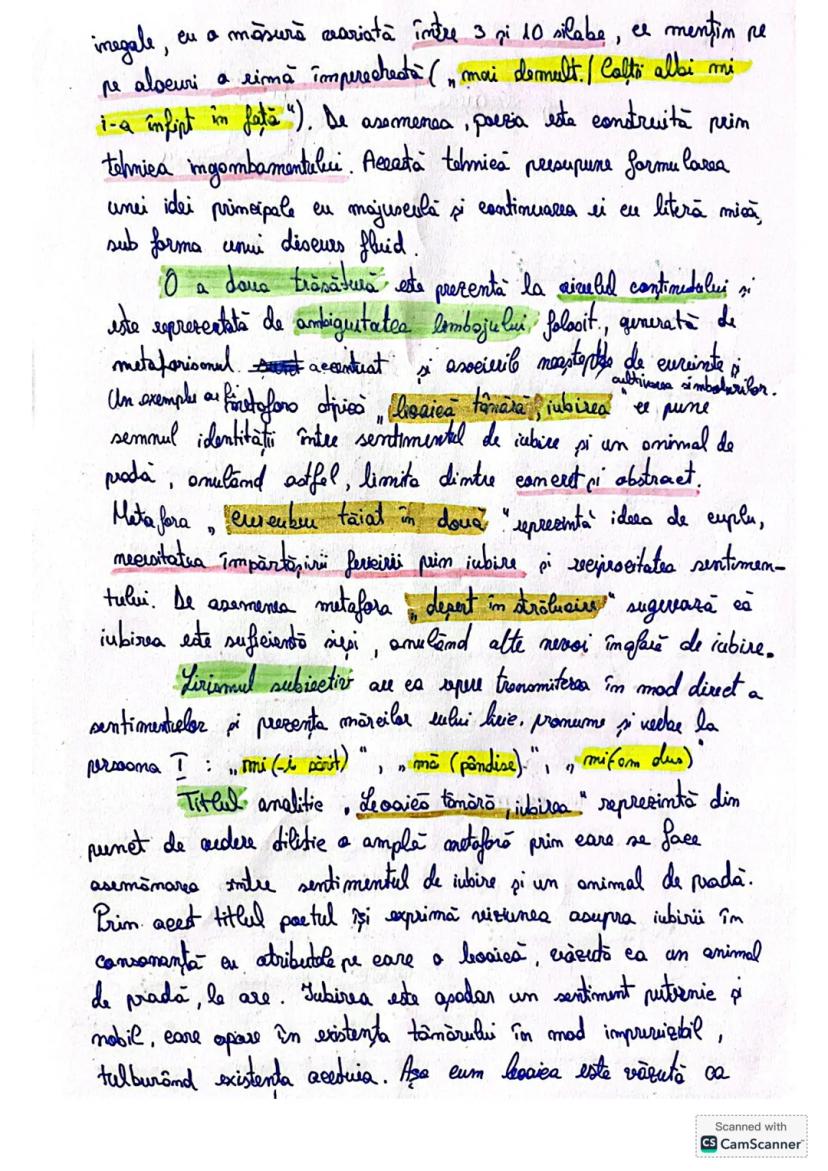 inegale, cu o măsură variată între 3 și 10 silabe, ce mențin pe
pe alocuri a rimă împerecheată („mai demult. / Colți albi mi
i-a înfipt în față"). De asemenea, poezia este construită prin
tehnica ingambamentului. Această tehnică presupune formularea
unei idei principale cu majusculă și continuarea ei cu literă mică,
sub forma unui discurs fluid.
O a doua trăsătură este prezentă la nivelul conținutului și
este reprezentată de ambiguitatea limbajului folosit, generată de
metaforismul accentuat și asocierile neașteptate de cuvinte și
cultivarea simbolurilor.
Un exemplu ar fi metafora tipică „leoaică tânără, iubirea" ce pune
semnul identității între sentimentul de iubire și un animal de
pradă, anulând astfel, limita dintre concret și abstract.
Metafora „curcubeu tăiat în două" reprezintă ideea de cuplu,
necesitatea împărtășirii fericirii prin iubire și reciprocitatea sentimen-
tului. De asemenea metafora „deșert în strălucire" sugerează că
iubirea este suficientă sieși, anulând alte nevoi în afară de iubire.
Lirismul subiectiv are ca repere transmiterea în mod direct a
sentimentelor și prezența mărcilor eului liric, pronume și verbe la
persoana I : „mi (-i sărit)", „mă (pândise)", „mi (am dus)"
Titlul analitic „Leoaică tânără, iubirea" reprezintă din
punct de vedere stilistic o amplă metaforă prin care se face
asemănarea între sentimentul de iubire și un animal de pradă.
Prin acest titlul poetul își exprimă viziunea asupra iubirii în
consonanță cu atributele pe care o leoaică, văzută ca un animal
de pradă, le are. Iubirea este așadar un sentiment puternic și
nobil, care apare în existența tânărului în mod imprevizibil,
tulburând existența acestuia. Așa cum leoaica este văzută ca
Scanned with
CS CamScanner